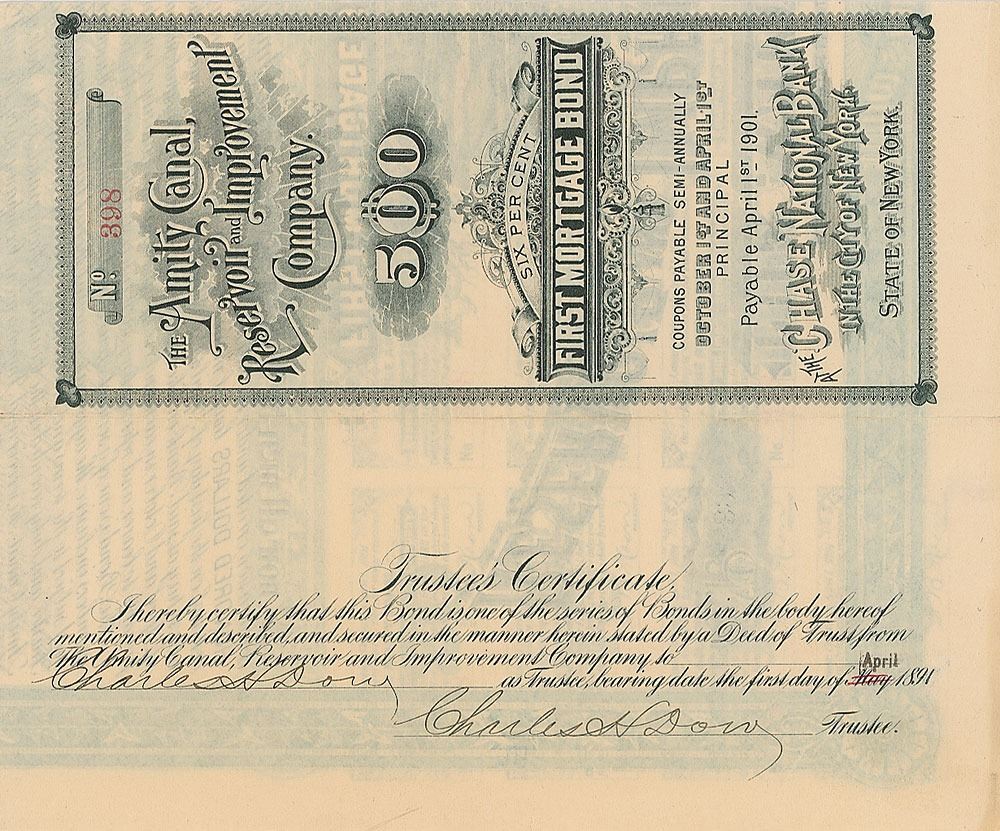 Nº. 398
THE Amity Canal,
Reservoir and Improvement
Company.
$500
SIX PER CENT
FIRST MORTGAGE BOND
COUPONS PAYABLE SEMI-ANNUALLY
OCTOBER 1ST AND APRIL 1ST
PRINCIPAL
Payable April 1ST 1901.
AT THE CHASE NATIONAL BANK
IN THE CITY OF NEW YORK.
STATE OF NEW YORK.
Trustee's Certificate.
I hereby certify that this Bond is one of the series of Bonds in the body hereof
mentioned and described, and secured in the manner herein stated by a Deed of Trust from
The Amity Canal, Reservoir and Improvement Company, to
Charles H Dow as Trustee, bearing date the first day of May April 1891
Charles H Dow Trustee.